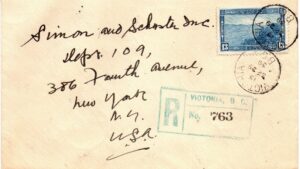 Simon and Schuster Inc.
Dept. 109,
386 Fourth Avenue,
New York
N.Y.
U.S.A
R
VICTORIA, B. C.
No. 763